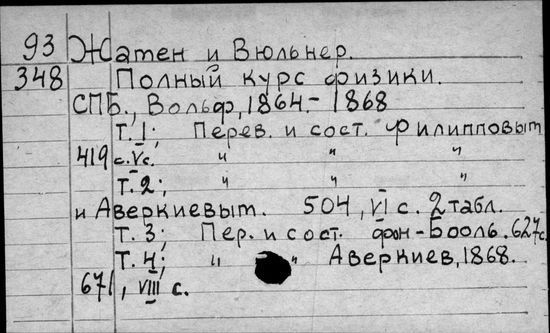 93 Жатен и Вюльнер.
348 Полный курс физики.
СПБ., Вольф, 1864.- 1868
Т. 1; Перев. и сост. Филипповым
419 с. V с. " " "
Т. 2; " " "
и Аверкиевым. 504, VI с. 2 табл.
Т. 3; Пер. и сост. фон-Бооль. 627 с.
Т. 4; " " Аверкиев, 1868.
671, VIII с.